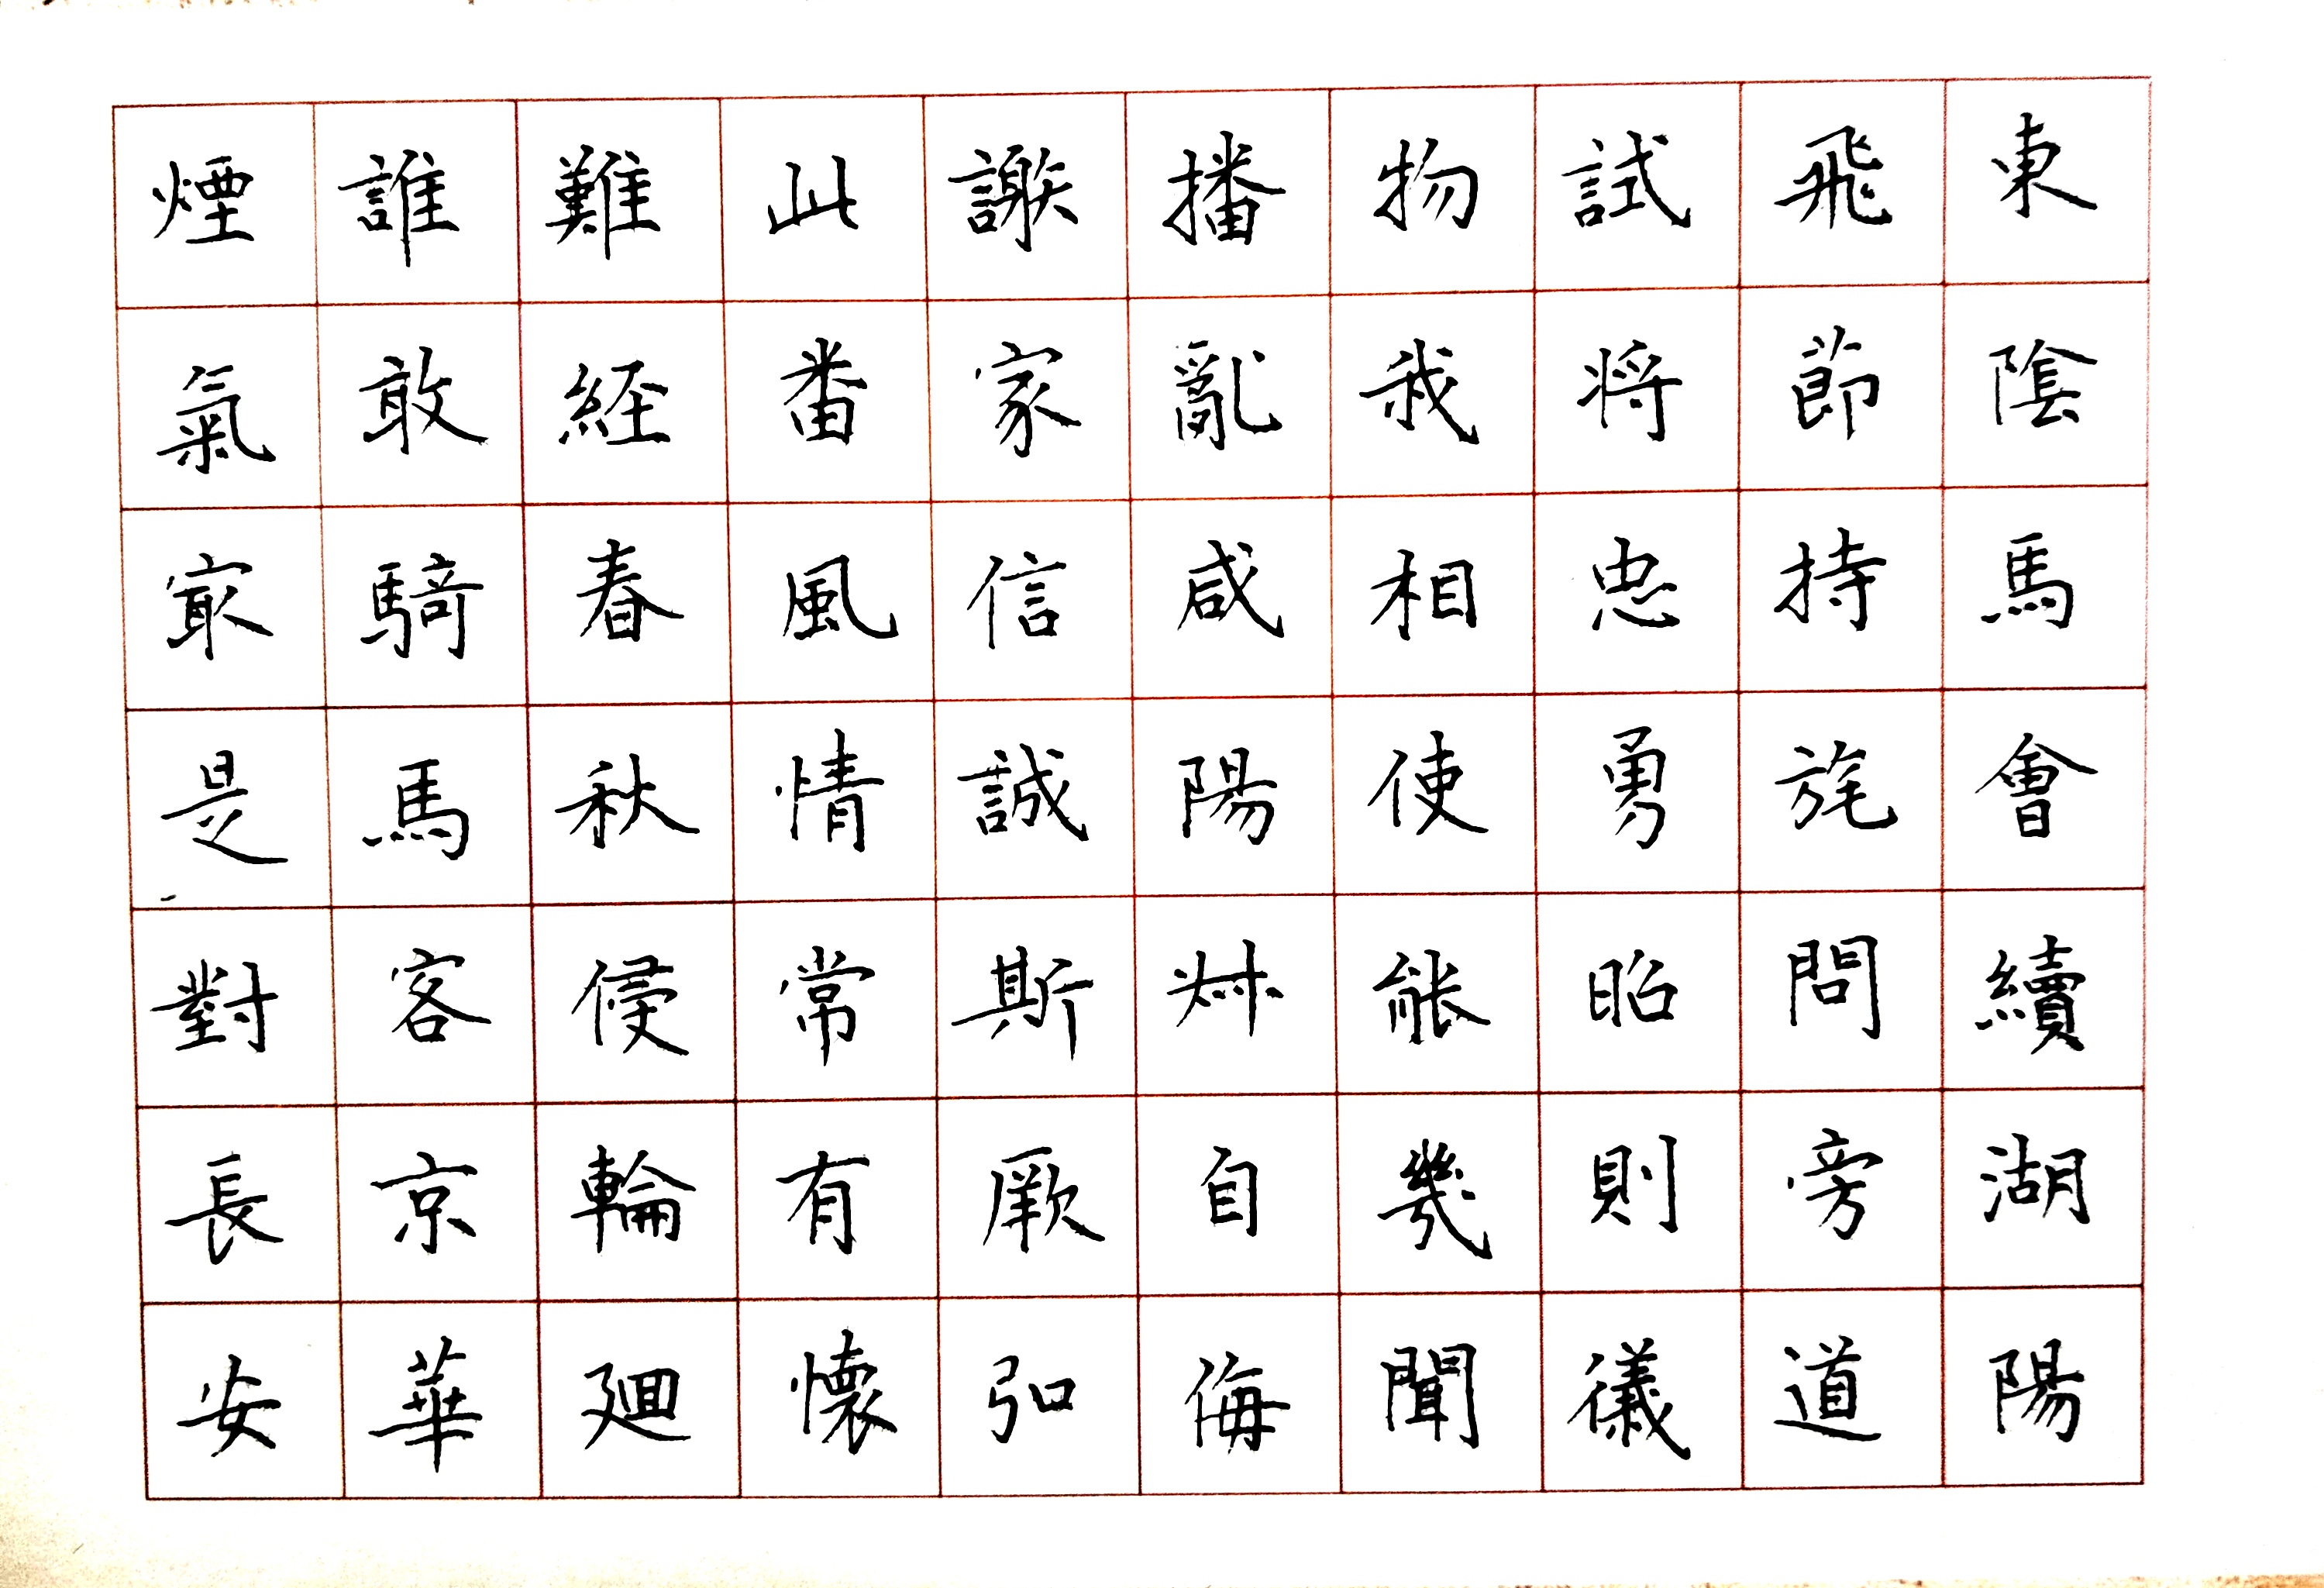 東陰馬會續湖陽
飛節持旄問旁道
試將忠勇昭則儀
物我相使能幾聞
播亂咸陽叔自侮
謝家信誠斯厥弘
此番風情常有懷
難經春秋侵輪迴
誰敢騎馬客京華
煙氣寂是對長安